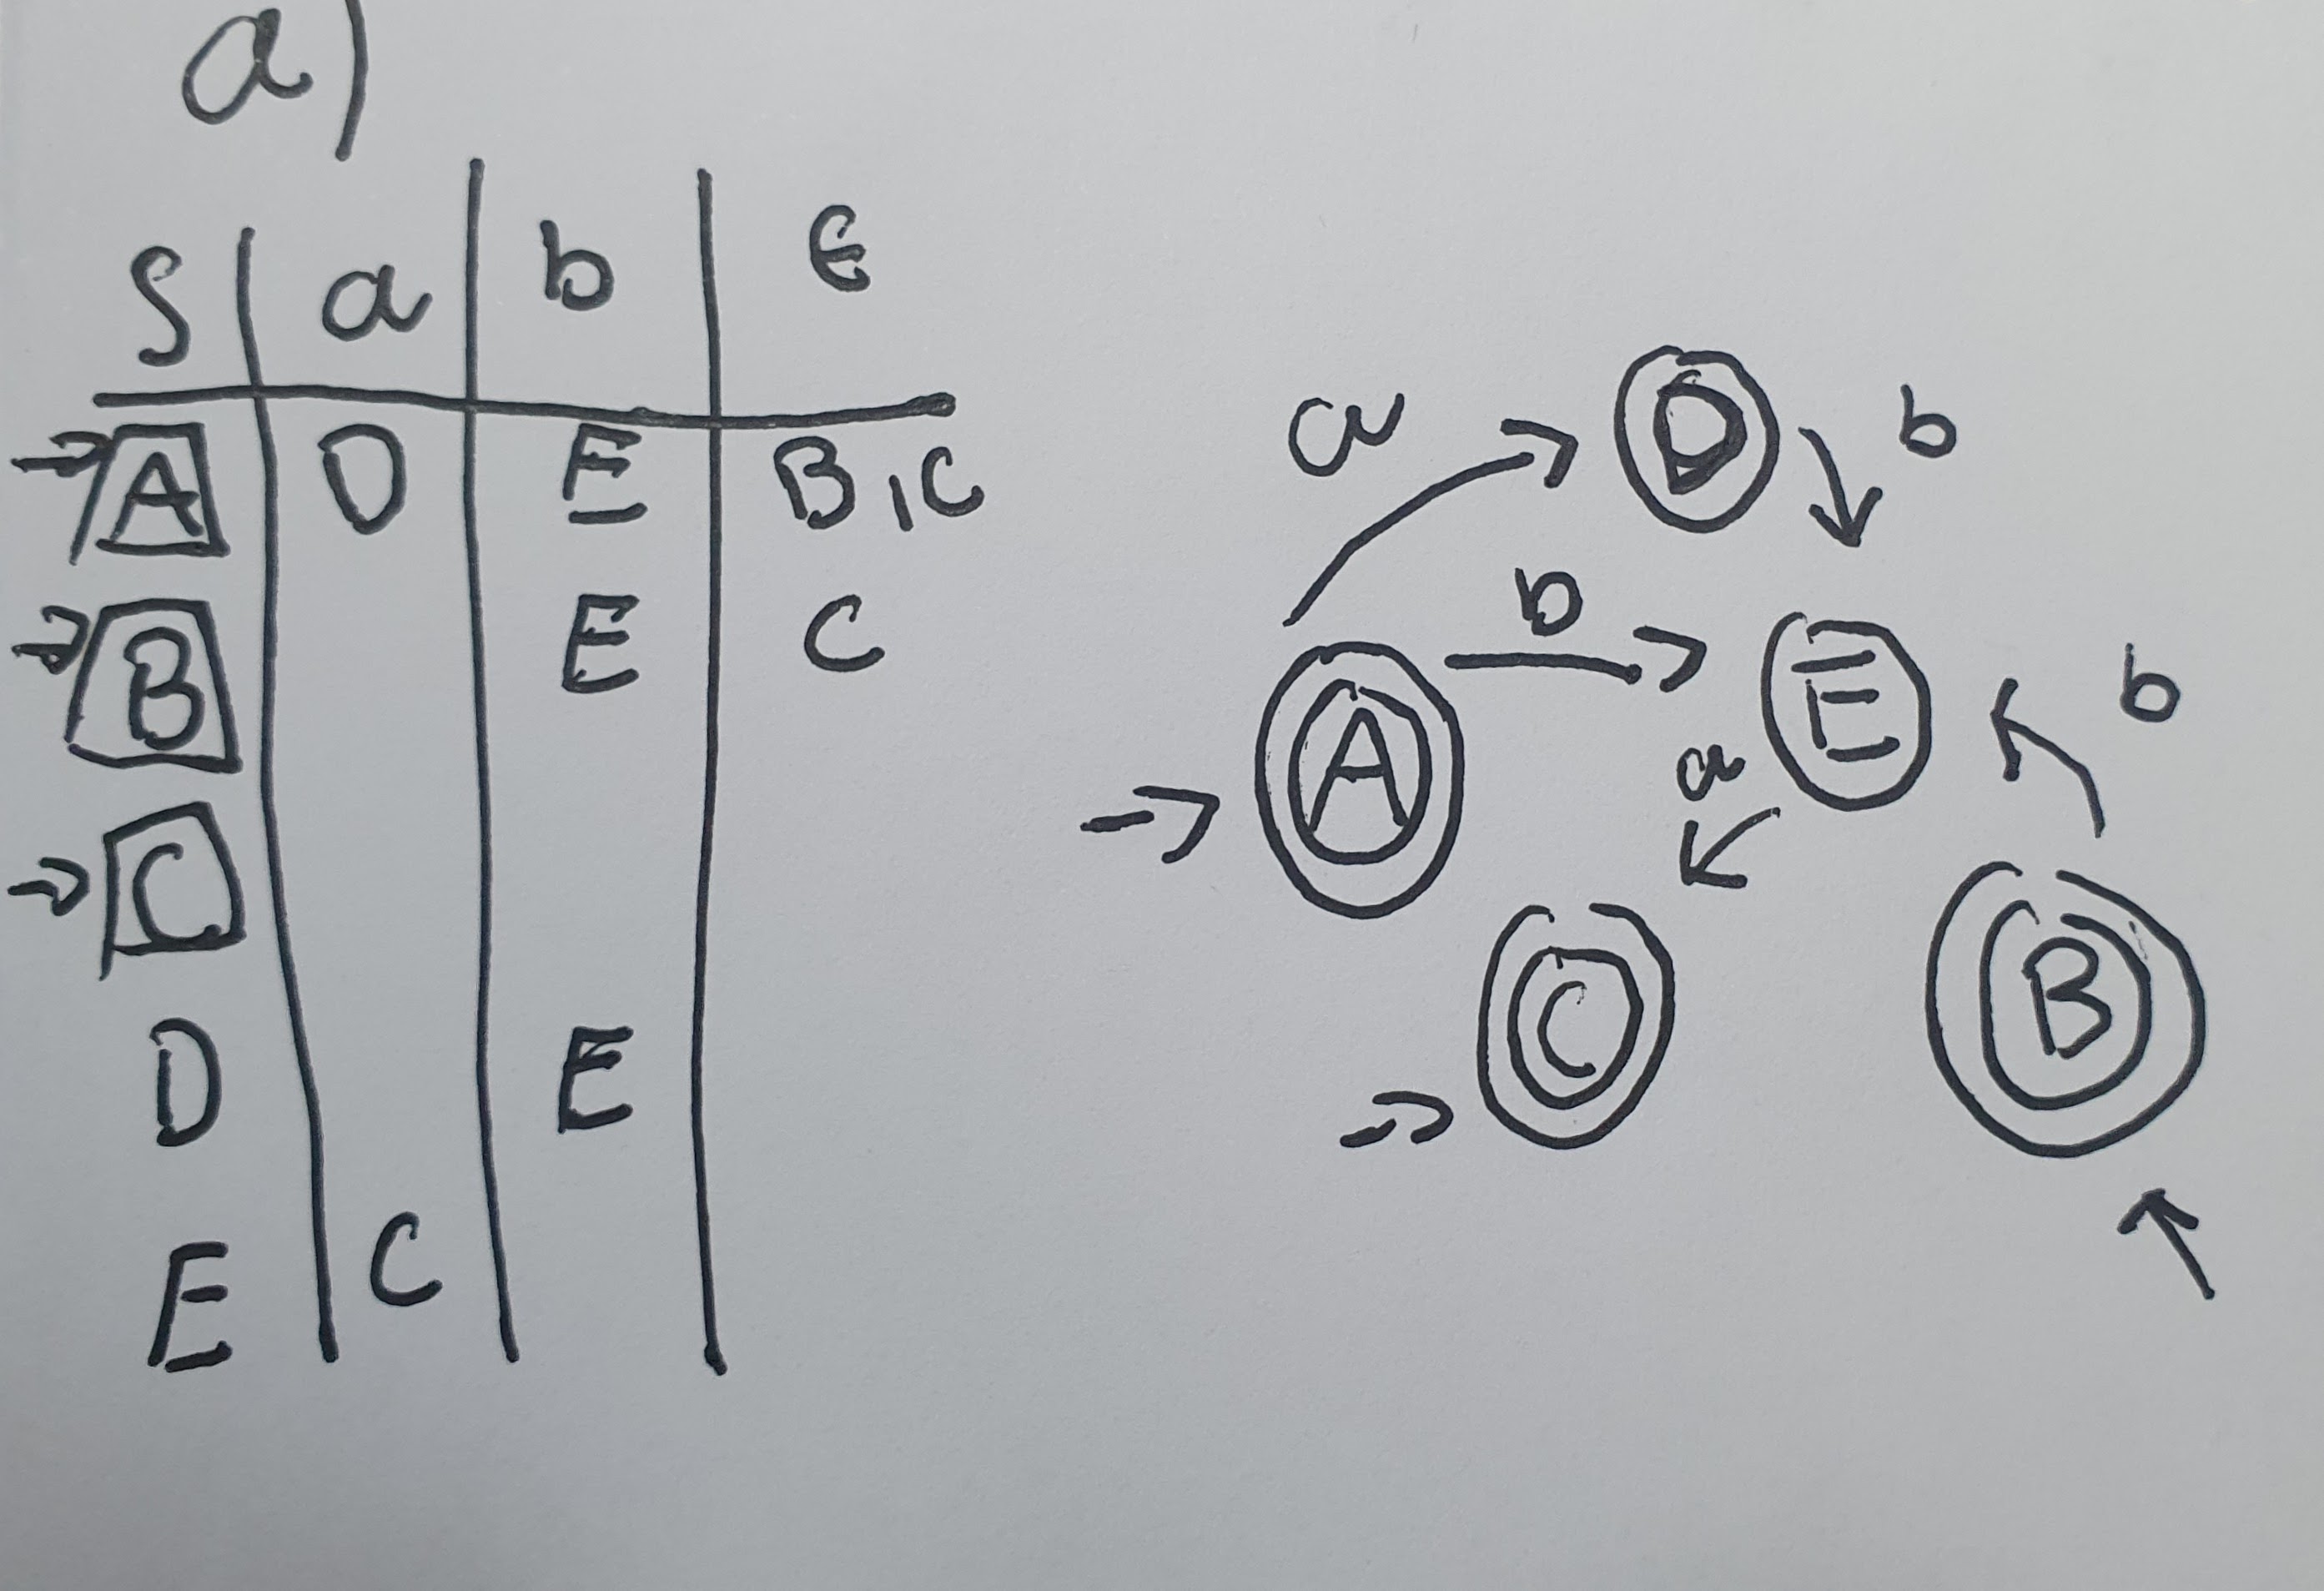 a)
S a b ε
→ A D E B,C
→ B E C
→ C
D E
E C
a D b
b
→ A E b
a
→ C B